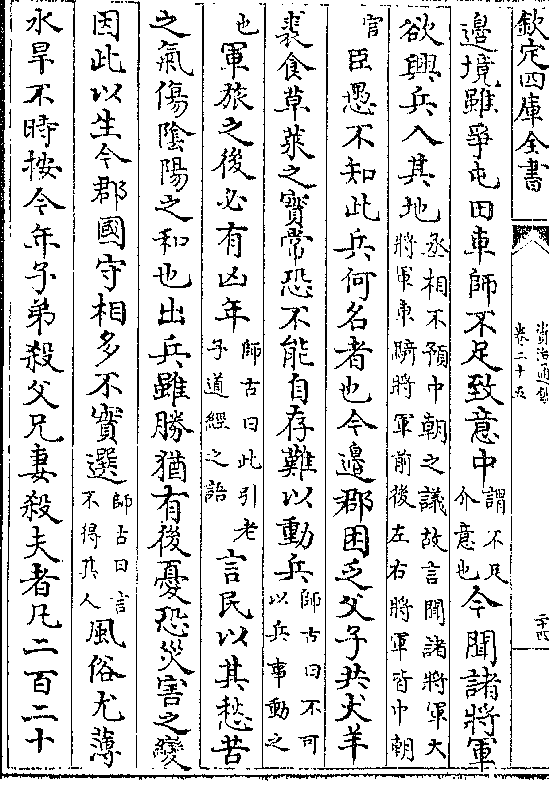 欽定四庫全書
資治通鑑
卷二十五
二十四
邊境雖爭屯田車師不足致意中謂不足介意也今聞諸將軍
欲興兵入其地丞相不預中朝之議故言聞諸將軍大將軍車騎將軍前後左右將軍皆中朝
官臣愚不知此兵何名者也今邊郡困乏父子共犬羊
裘食草萊之實常恐不能自存難以動兵師古曰不可以兵事動之
也軍旅之後必有凶年師古曰此引老子道經之語言民以其愁苦
之氣傷陰陽之和也出兵雖勝猶有後憂恐災害之變
因此以生今郡國守相多不實選師古曰言不得其人風俗尤薄
水旱不時按今年子弟殺父兄妻殺夫者凡二百二十